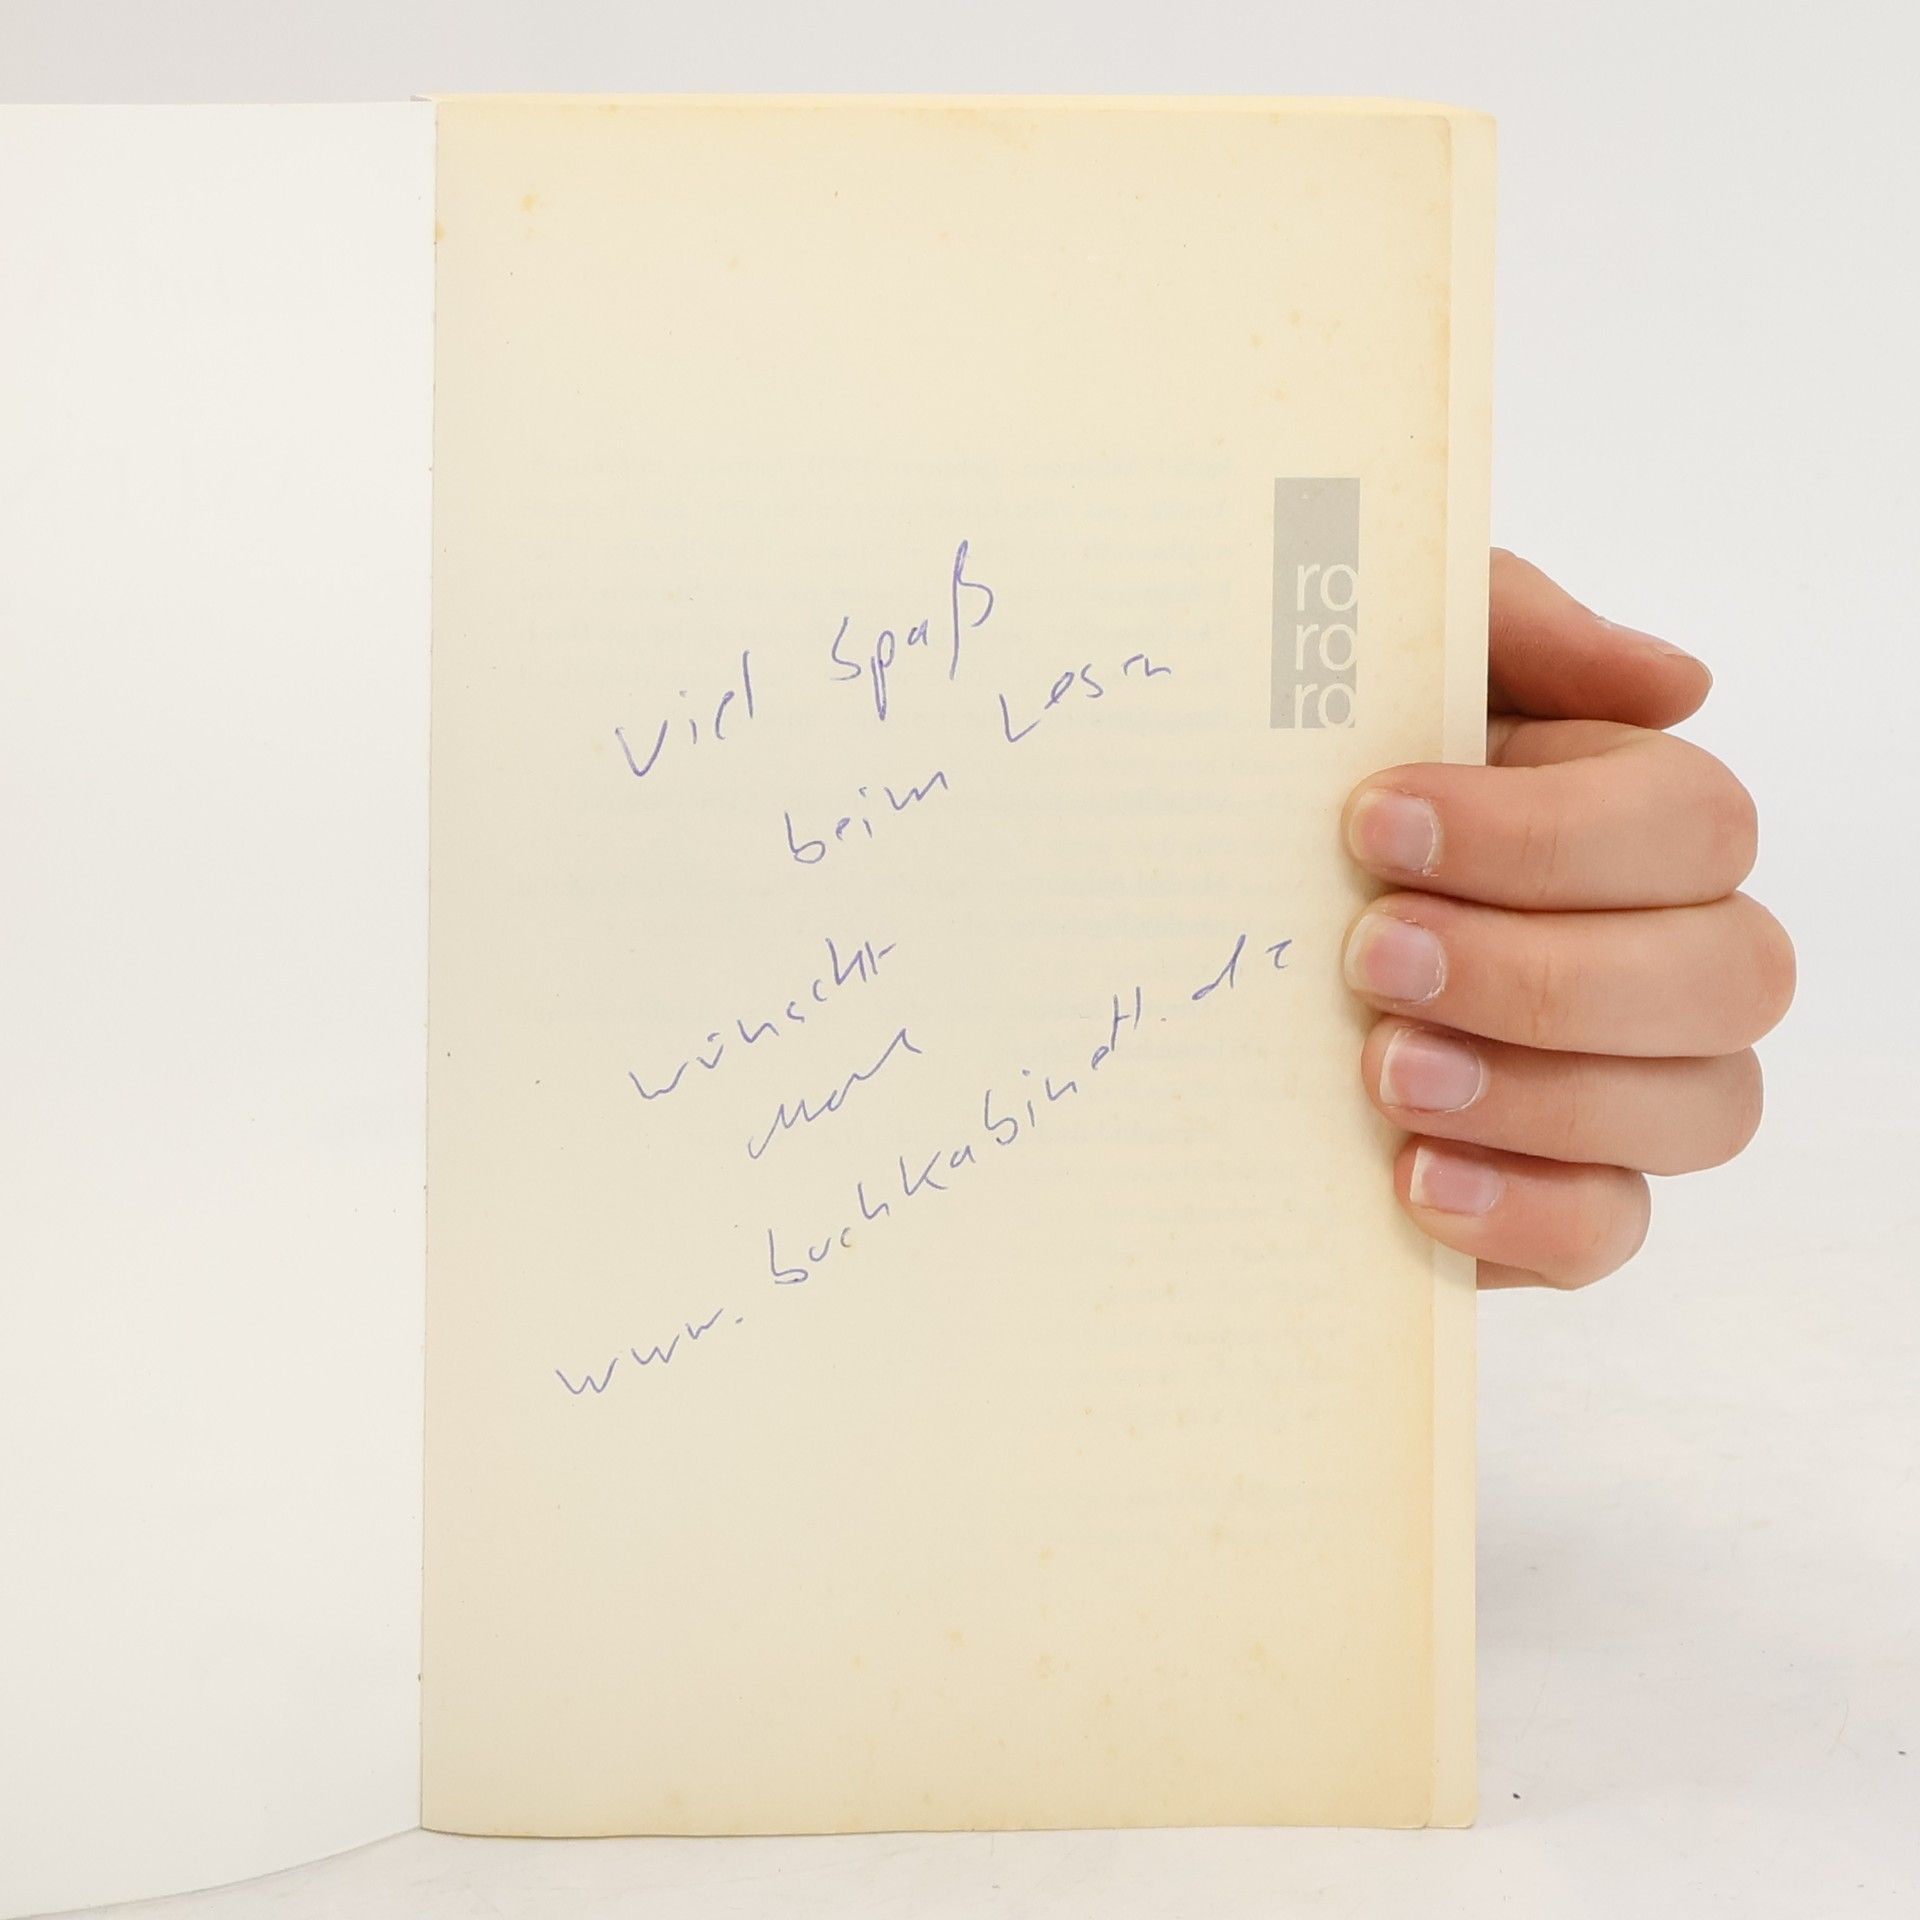 Viel Spaß
beim Lesen
wünscht
www.buchkabinett.de
ro
ro
ro